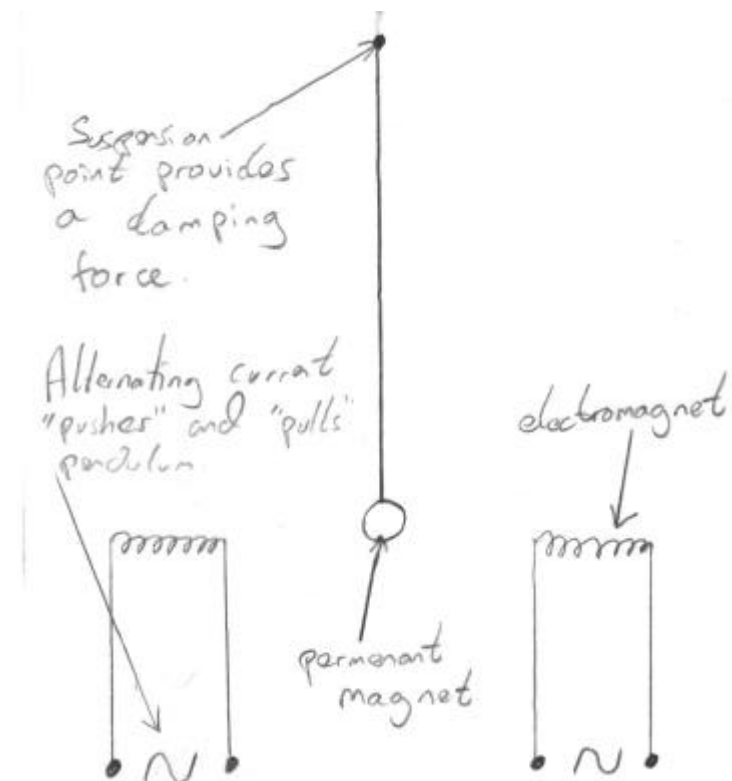 Suspension
point provides
a damping
force.
Alternating current
"pushes" and "pulls"
pendulum
electromagnet
permenant
magnet